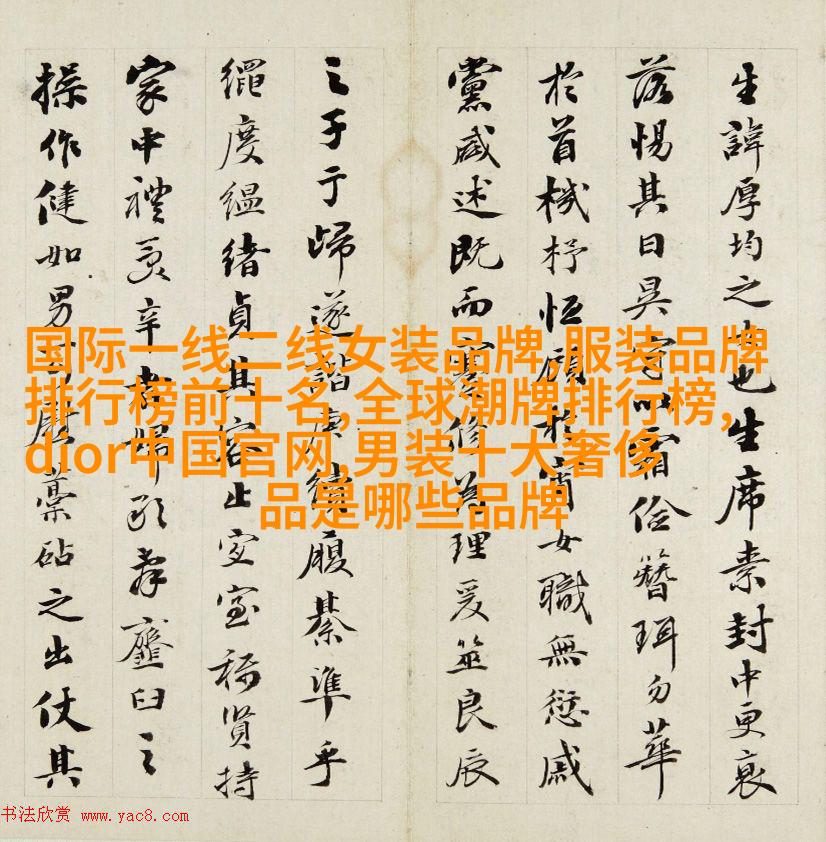 生諱厚均之也生席素封中更衰
落惕其日昃以霜儉簪珥勿華
於首機杼恒願於宵女職無愆戚
黨咸述既而修理爰筮良辰
之子于歸遂諧履綦準乎
繩度縕緒貞其容止室稱賢持
家中禮辛臼之
操作健如男藁砧之出仗其
国际一线二线女装品牌,服装品牌
排行榜前十名,全球潮牌排行榜,
dior中国官网,男装十大奢侈
品是哪些品牌
书法欣赏 www.yac8.com